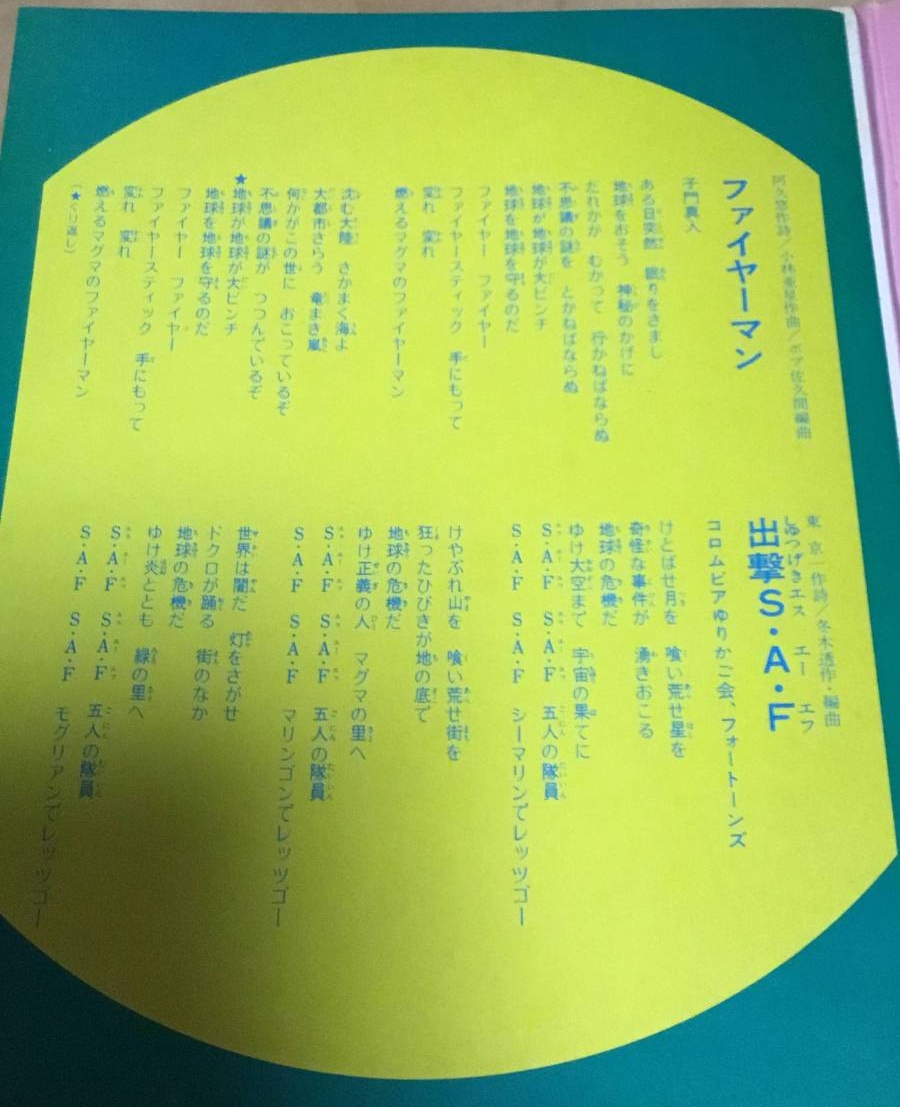 阿久悠作詩/小林亜星作曲/ボブ佐久間編曲
ファイヤーマン
子門真人
ある日突然 眠りをさまし
地球をおそう 神秘のかげに
だれかが むかって 行かねばならぬ
不思議の謎を とかねばならぬ
地球が地球が大ピンチ
地球を地球を守るのだ
ファイヤー ファイヤー
ファイヤースティック 手にもって
変れ 変れ
燃えるマグマのファイヤーマン
沈む大陸 さかまく海よ
大都市さらう 竜まき嵐
何かがこの世に おこっているぞ
不思議の謎が つつんでいるぞ
★地球が地球が大ピンチ
地球を地球を守るのだ
ファイヤー ファイヤー
ファイヤースティック 手にもって
変れ 変れ
燃えるマグマのファイヤーマン
(★くり返し)
東京一作詩/冬木透作・編曲
しゅつげきエス エー エフ
出撃S・A・F
コロムビアゆりかご会、フォートーンズ
けとばせ月を 喰い荒せ星を
奇怪な事件が 湧きおこる
地球の危機だ
ゆけ大空まで 宇宙の果てに
S・A・F S・A・F 五人の隊員
S・A・F S・A・F シーマリンでレッツゴー
けやぶれ山を 喰い荒せ街を
狂ったひびきが地の底で
地球の危機だ
ゆけ正義の人 マグマの里へ
S・A・F S・A・F 五人の隊員
S・A・F S・A・F マリンゴンでレッツゴー
世界は闇だ 灯をさがせ
ドクロが踊る 街のなか
地球の危機だ
ゆけ炎ととも 緑の里へ
S・A・F S・A・F 五人の隊員
S・A・F S・A・F モグリアンでレッツゴー